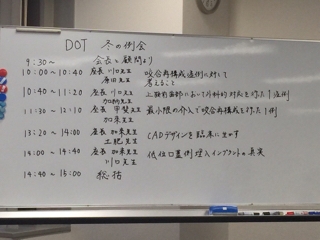 DOT 冬の例会
9:30～ 会長と顧問より
10:00～10:40 座長 川口先生 咬合再構成症例に対して
原田先生 考えること
10:40～11:20 座長 川口先生 上顎前歯部において外科的対応を作った1症例
加納先生
11:30～12:10 座長 甲斐先生 最小限の介入で咬合再構成を作った1例
加来先生
13:20～14:00 座長 加来先生 CADデザインを臨床に生かす
土肥先生
14:00～14:40 座長 加来先生 低位口蓋側埋入インプラントの真実
川口先生
14:40～15:00 総括